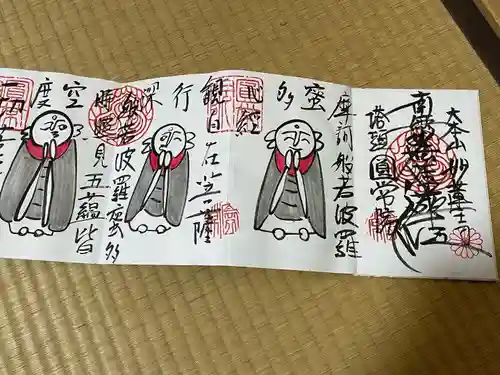 大本山 妙蓮寺
塔頭 圓常院
摩訶般若波羅
蜜
多
觀自在菩薩
行
深
般若波羅蜜多
時照見五蘊皆
空
度
一切